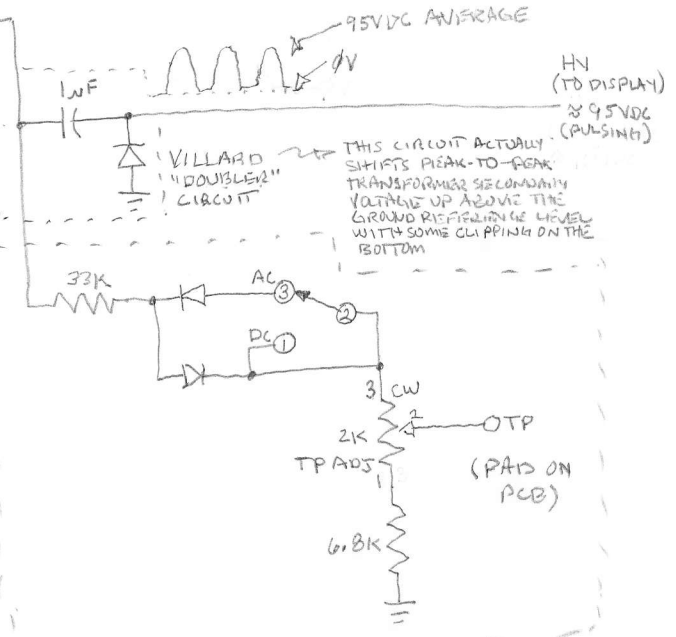 95VDC AVERAGE
ØV
1uF
HV
(TO DISPLAY)
≈ 95VDC
(PULSING)
VILLARD
"DOUBLER"
CIRCUIT
THIS CIRCUIT ACTUALLY
SHIFTS PEAK-TO-PEAK
TRANSFORMER SECONDARY
VOLTAGE UP ABOVE THE
GROUND REFERENCE LEVEL
WITH SOME CLIPPING ON THE
BOTTOM
33K
AC
3
2
DC
1
3 CW
2
TP
2K
TP ADJ
1
(PAD ON
PCB)
6.8K